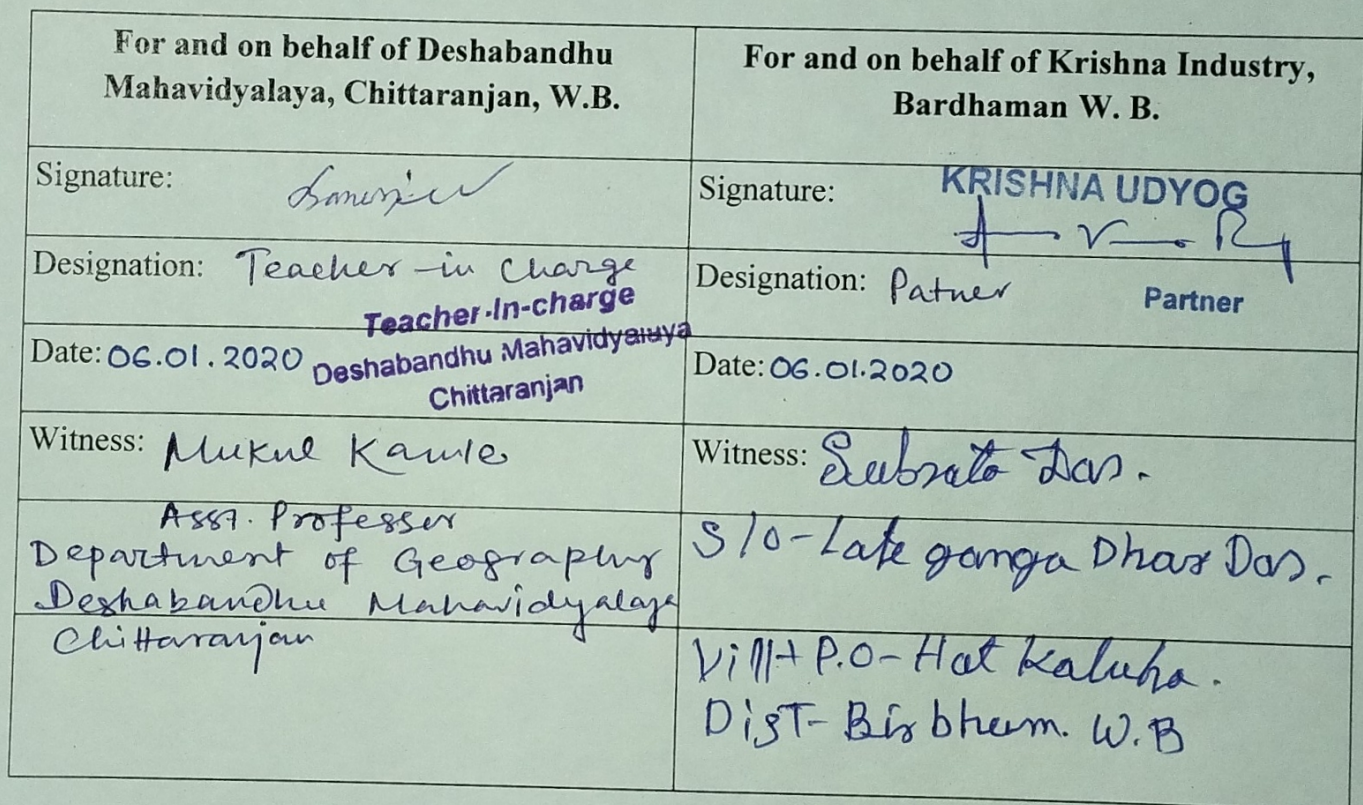 For and on behalf of Deshabandhu
Mahavidyalaya, Chittaranjan, W.B.
For and on behalf of Krishna Industry,
Bardhaman W. B.
Signature:
Signature:
KRISHNA UDYOG
Designation: Teacher-in Charge
Teacher-In-charge
Deshabandhu Mahavidyalaya
Chittaranjan
Designation: Patner
Partner
Date: 06.01.2020
Date: 06.01.2020
Witness: Mukul Kamle
Witness: Subrata Das.
Asst. Professer
Department of Geography
Deshabandhu Mahavidyalaya
Chittaranjan
S/O-Late ganga Dhar Das.
Vill+P.O-Hat Kaluha.
DisT-Birbhum. W.B